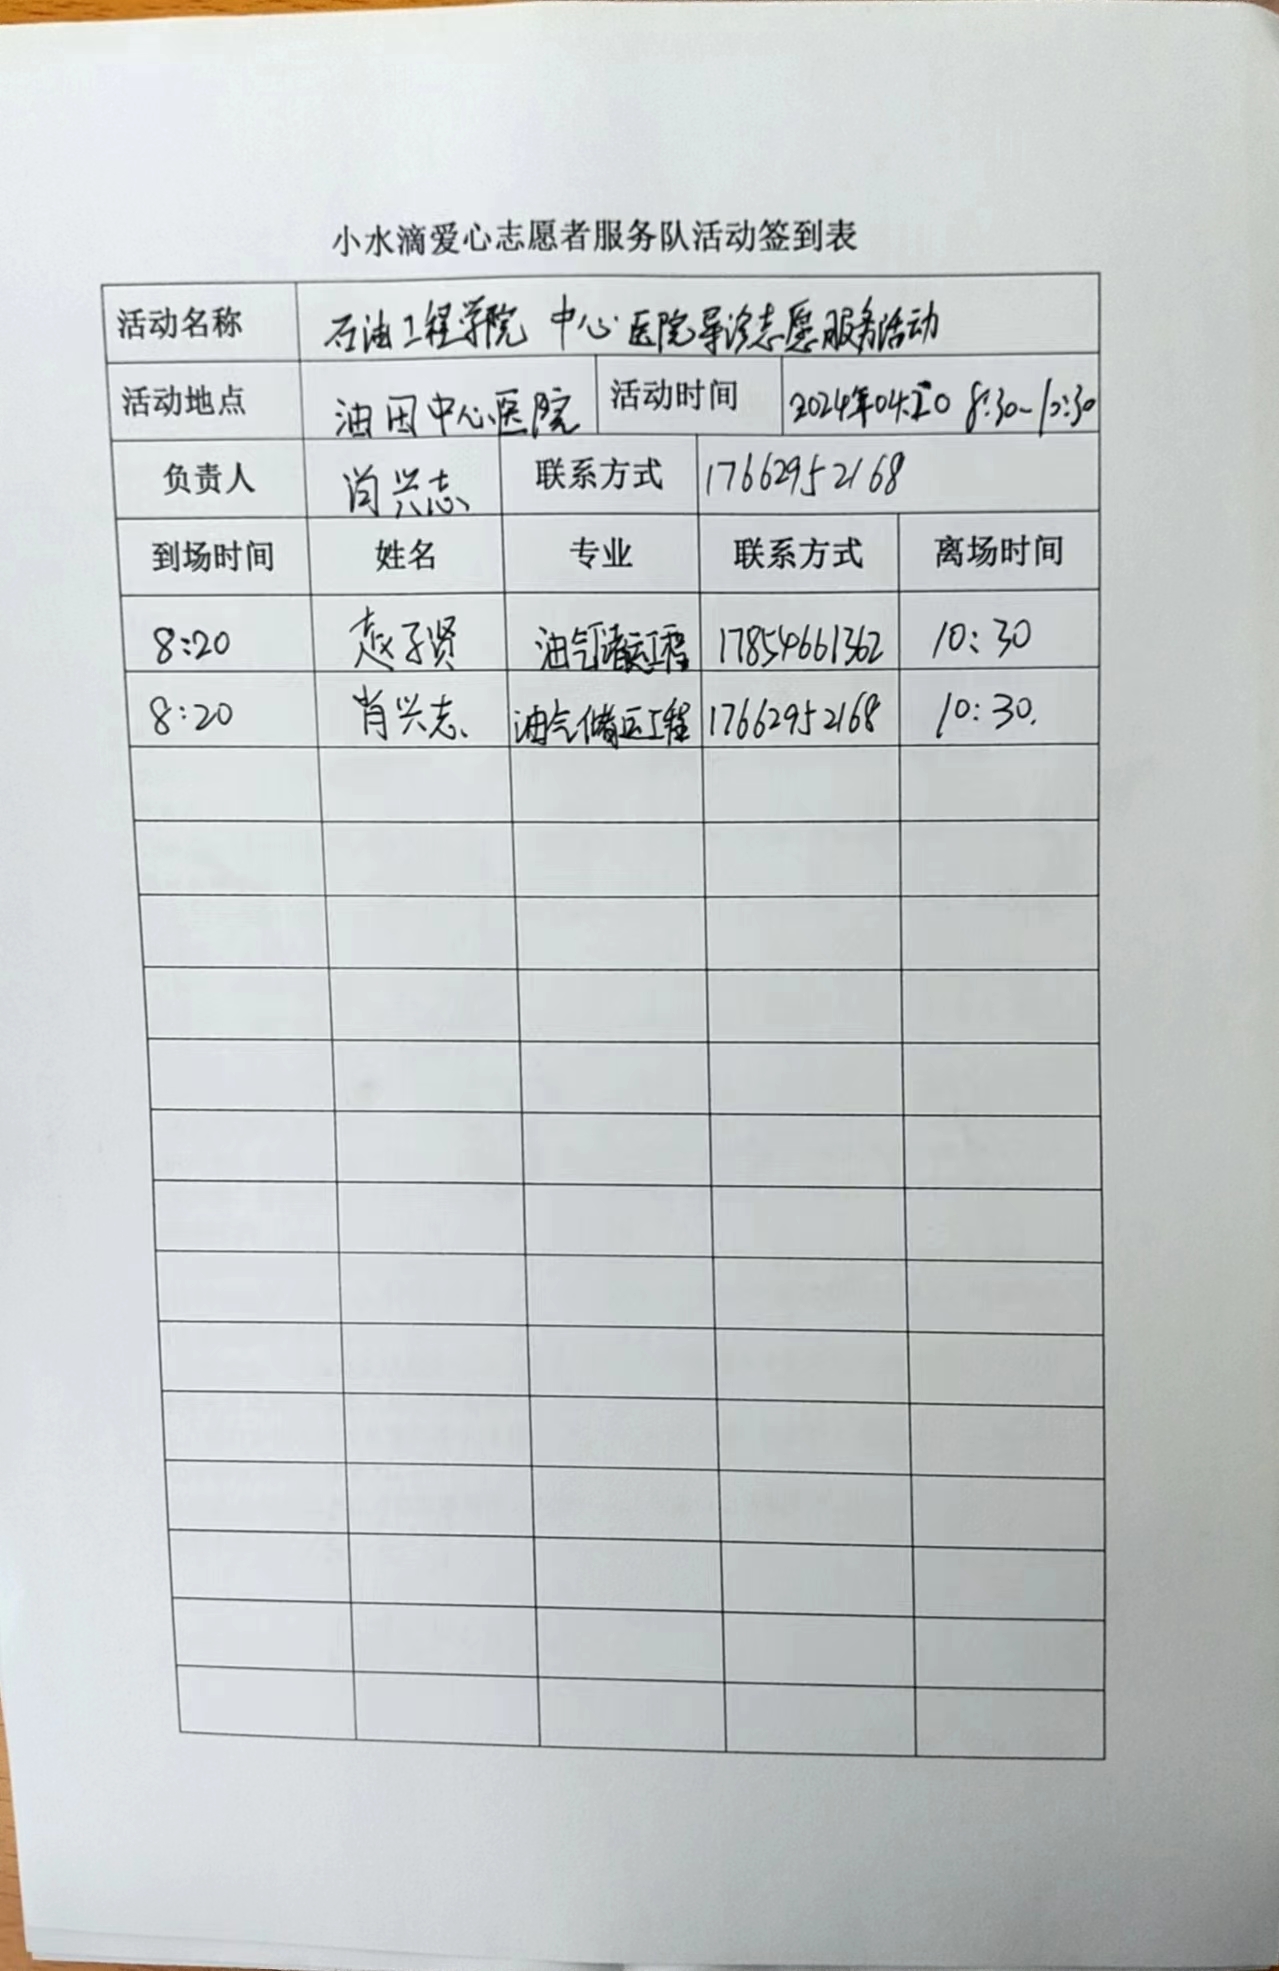 小水滴爱心志愿者服务队活动签到表
活动名称 石油工程学院 中心医院导诊志愿服务活动
活动地点 油田中心医院 活动时间 2024年04.20 8:30-10:30
负责人 肖兴志 联系方式 17662952168
到场时间 姓名 专业 联系方式 离场时间
8:20 赵子贤 油气储运工程 17854661362 10:30
8:20 肖兴志 油气储运工程 17662952168 10:30.